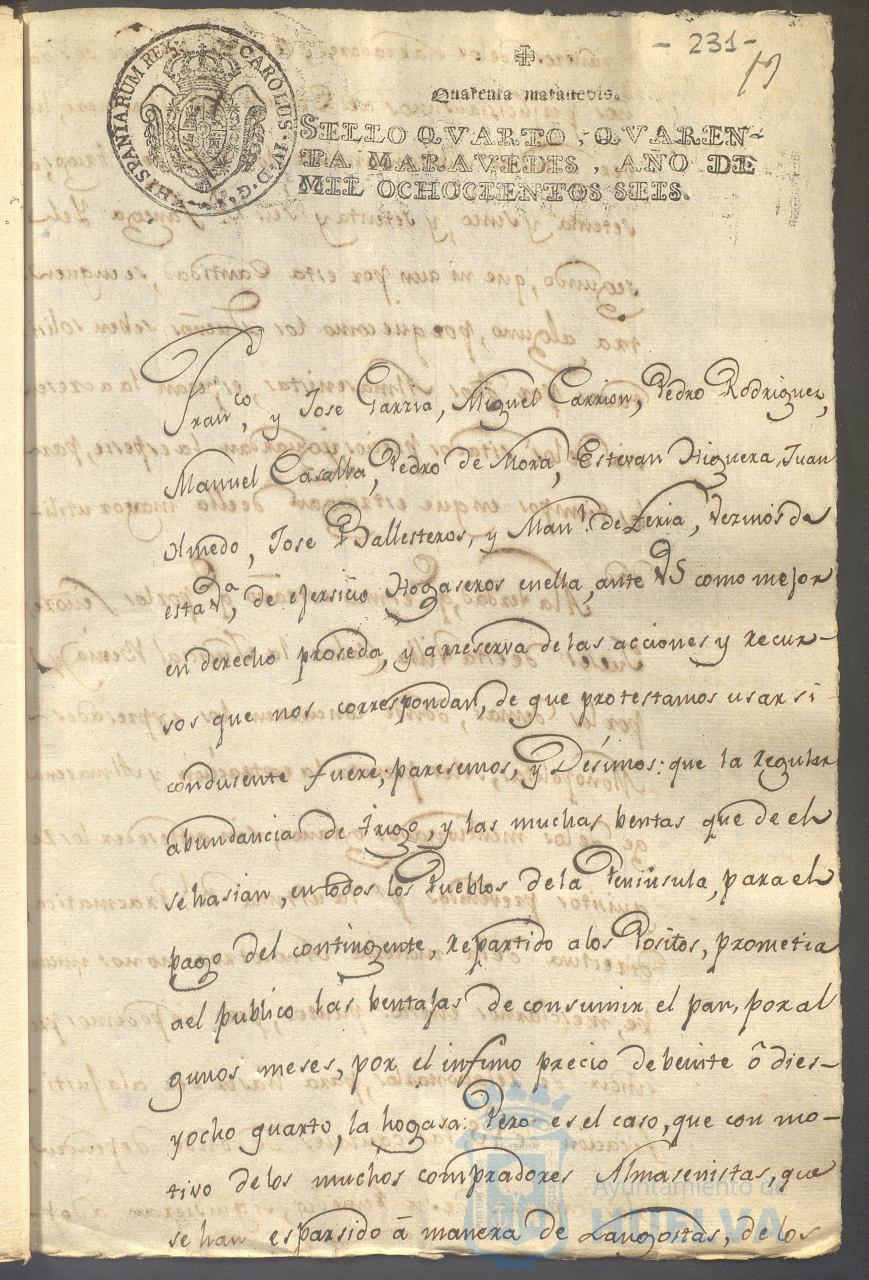 - 231 -
13
HISPANIARUM REX. CAROLUS. IV. D. G.
Quarenta maravedis.
SELLO QVARTO, QVAREN-
TA MARAVEDIS, AÑO DE
MIL OCHOCIENTOS SEIS.
Franco, y Jose Garzia, Miguel Carrion, Pedro Rodriguez,
Manuel Casalba, Pedro de Mora, Estevan Higuera, Juan
Olmedo, Jose Ballesteros, y Manl. de Feria, Vezinos de
esta Va, de ejersicio Hogaseros en ella, ante VS como mejor
en derecho proseda, y a reserva de las acciones y recur-
sos que nos correspondan, de que protestamos usar si
condusente fuere; paresemos, y Désimos: que la regular
abundancia de trigo, y las muchas bentas que de el
se hasian, en todos los Pueblos de la Peninsula, para el
pago del contingente, repartido a los Positos, prometia
a el publico las bentajas de consumir el pan, por al
gunos meses, por el infimo precio de beinte ô dies-
y ocho quarto, la hogasa: Pero es el caso, que con mo-
tivo de los muchos compradores Almasenistas, que
se han esparsido â manera de Langostas, de los
Ayuntamiento de
HUELVA